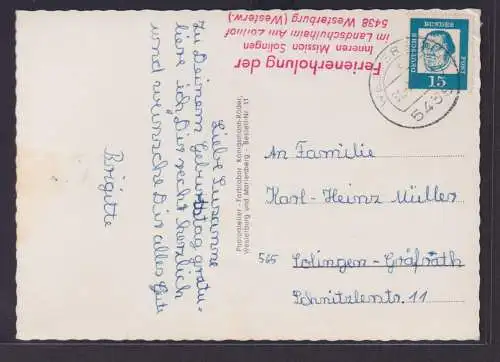 Liebe Susanne
Zu Deinem Geburtstag gratu-
liere ich Dir recht herzlich
und wünsche Dir alles Gute
Brigitte
Ferienerholung der
Inneren Mission Solingen
im Landschulheim Am
5438 Westerburg (Westerw.)
Photoatelier - Farblabor Königerlom-Röder,
Westerburg und Marienberg - Bestell-Nr. 11
DEUTSCHE
BUNDES
POST
15
543
An Familie
Karl-Heinz Müller
565 Solingen-Gräfrath
Schnitzlerstr. 11